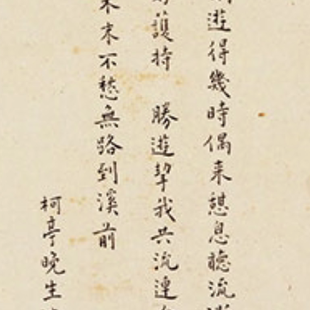 遊得幾時偶來憩息聽流
護持 勝遊挈我共流連
末不愁無路到溪前
柯亭晚生